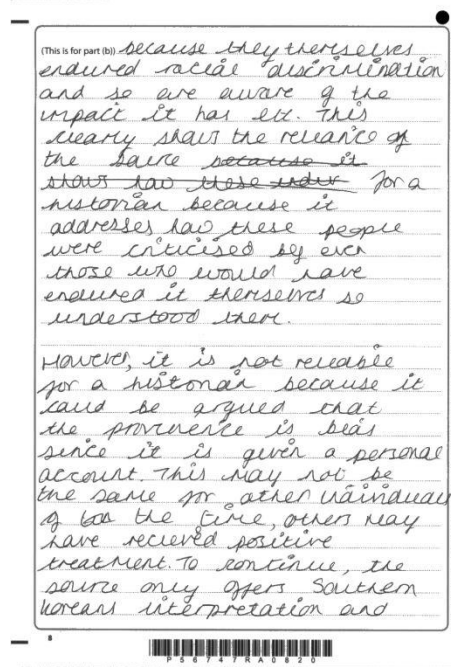 (This is for part (b)) because they themselves
endured racial discrimination
and so are aware of the
impact it has etc. This
clearly shows the reliance of
the source because it
shows how these under for a
historian because it
addresses how these people
were criticised by even
those who would have
endured it themselves so
understood them.
However, it is not reliable
for a historian because it
could be argued that
the provinence is bias
since it is given a personal
account. This may not be
the same for other individuals
of the time, others may
have recieved positive
treatment. To continue, the
source only offers Southern
Koreans interpretation and
8
P56747RA0820